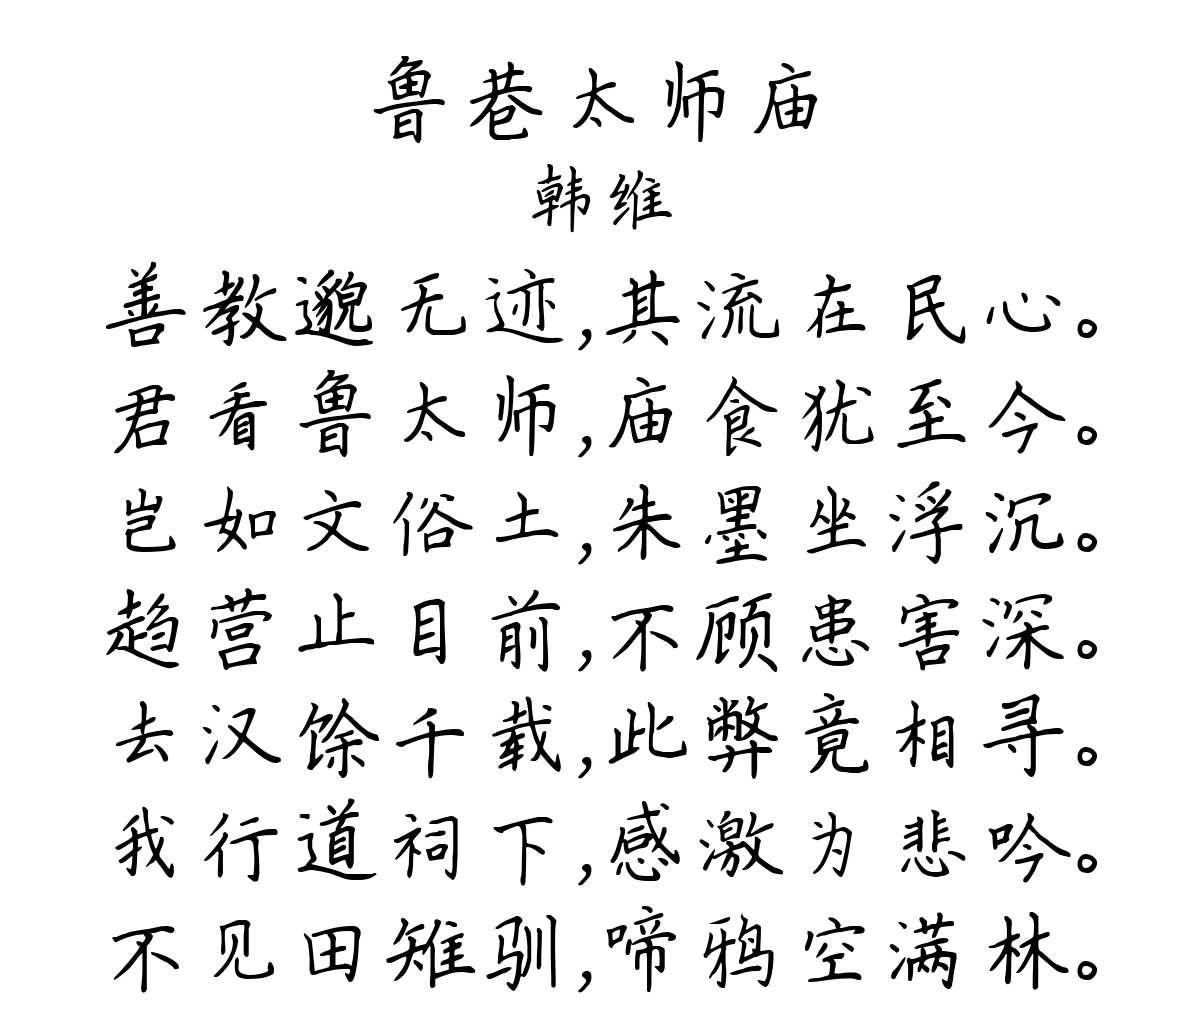 鲁巷太师庙
韩维
善教邈无迹,其流在民心。
君看鲁太师,庙食犹至今。
岂如文俗士,朱墨坐浮沉。
趋营止目前,不顾患害深。
去汉馀千载,此弊竟相寻。
我行道祠下,感激为悲吟。
不见田雉驯,啼鸦空满林。